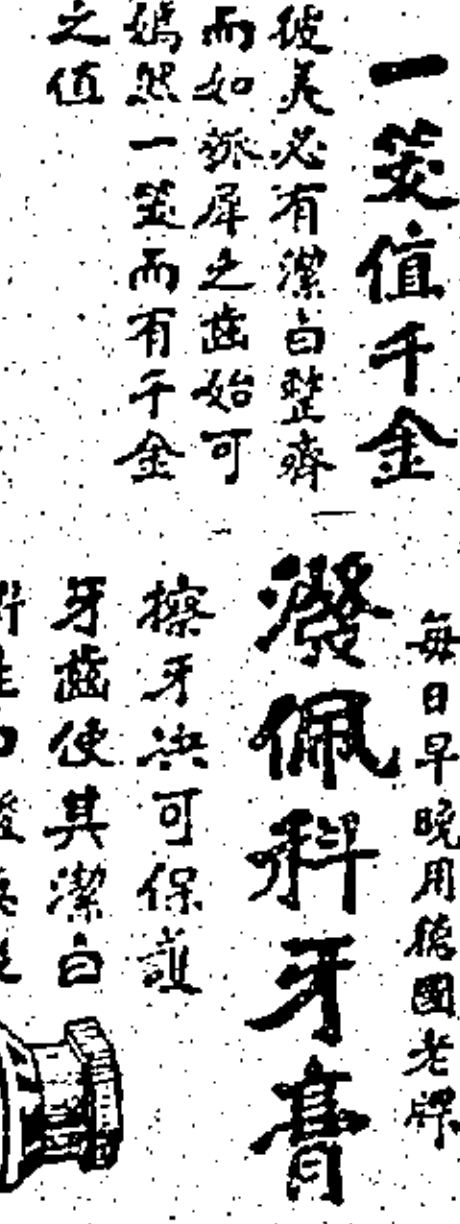 一笑值千金
彼美必有潔白整齊
而如瓠犀之齒始可
嫣然一笑而有千金
之值
每日早晚用德國老牌
潑佩科牙膏
擦牙决可保護
牙齒使其潔白